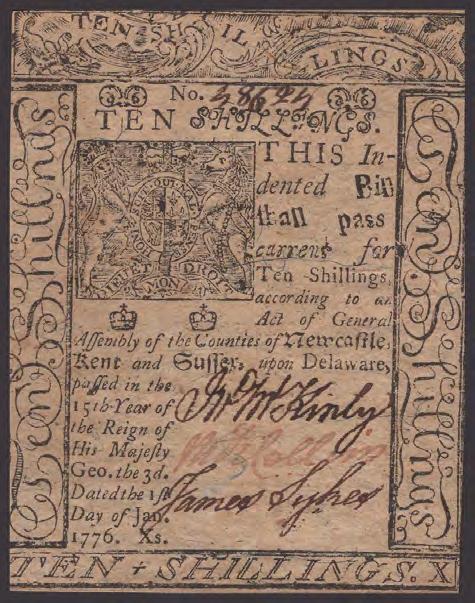 TEN SHIL
LINGS
No. 38625
TEN SHILLINGS.
THIS In-
dented Bill
shall pass
current for
Ten Shillings,
according to an
Act of General
Assembly of the Counties of Newcastle,
Kent and Sussex, upon Delaware,
passed in the
15th Year of
the Reign of
His Majesty
Geo. the 3d.
Dated the 1st
Day of Jan.
1776. Xs.
HONI SOIT QUI MAL Y PENSE
DIEU ET MON DROIT
Jno McKinly
James Sykes
Ten Shillings
Ten Shillings
TEN SHILLINGS. X